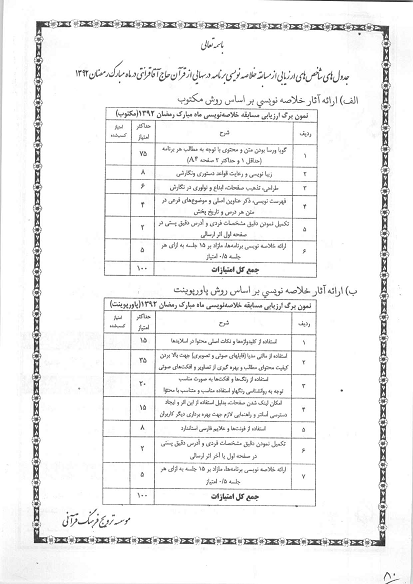 باسمه تعالی
جدول‌های شاخص‌های ارزیابی از مسابقه خلاصه نویسی برنامه درسهایی از قرآن حاج آقا قرائتی در ماه مبارک رمضان ۱۳۹۲
الف) ارائه آثار خلاصه نویسی بر اساس روش مکتوب
نمون برگ ارزیابی مسابقه خلاصه‌نویسی ماه مبارک رمضان ۱۳۹۲(مکتوب)
ردیف شرح حداکثر امتیاز امتیاز کسب‌شده
۱ گویا و رسا بودن متن و محتوی با توجه به مطالب هر برنامه ۷۵
(حداقل ۱ و حداکثر ۲ صفحه A۴)
۲ زیبا نویسی و رعایت قواعد دستوری و نگارشی ۸
۳ طراحی، تذهیب صفحات، ابداع و نوآوری در نگارش ۶
۴ فهرست نویسی، ذکر عناوین اصلی و موضوع‌های فرعی در ۴
متن هر درس و تاریخ پخش
۵ تکمیل نمودن دقیق مشخصات فردی و آدرس دقیق پستی در ۲
صفحه اول اثر ارسالی
۶ ارائه خلاصه نویسی برنامه‌ها، مازاد بر ۱۵ جلسه به ازای هر ۵
جلسه ۰/۵ امتیاز
جمع کل امتیازات ۱۰۰
ب) ارائه آثار خلاصه نویسی بر اساس روش پاورپوینت
نمون برگ ارزیابی مسابقه خلاصه‌نویسی ماه مبارک رمضان ۱۳۹۲(پاورپوینت)
ردیف شرح حداکثر امتیاز امتیاز کسب‌شده
۱ استفاده از کلیدواژه‌ها و نکات اصلی محتوا در اسلایدها ۱۵
۲ استفاده از مالتی مدیا (فایلهای صوتی و تصویری) جهت بالا بردن ۳۵
کیفیت محتوای مطالب و بهره گیری از تصاویر و افکت‌های صوتی
۳ استفاده از رنگ‌ها و افکت‌ها به صورت مناسب ۲۰
توجه به روانشناسی رنگها و استفاده مناسب و متناسب با محتوا
۴ امکان لینک شدن صفحات، بدلیل استفاده از این اثر و ایجاد ۱۵
دسترسی آسانتر و راهنمایی لازم جهت بهره برداری دیگر کاربران
۵ استفاده از فونت‌ها و علایم فارسی استاندارد ۸
۶ تکمیل نمودن دقیق مشخصات فردی و آدرس دقیق پستی ۲
در صفحه اول یا آخر اثر ارسالی
۷ ارائه خلاصه نویسی برنامه‌ها، مازاد بر ۱۵ جلسه به ازای هر ۵
جلسه ۰/۵ امتیاز
جمع کل امتیازات ۱۰۰
موسسه ترویج فرهنگ قرآنی
۸۰